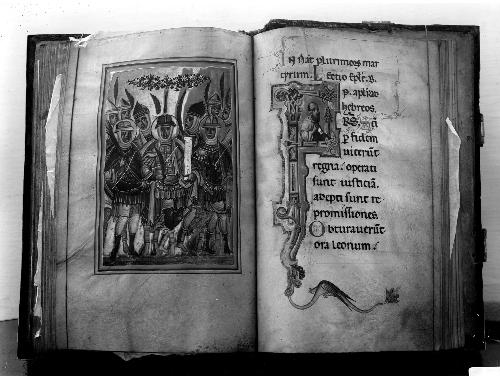 In nat plurimoꝝ mar
tyrum. Lectio epl̄e. B.
p. apli ad
hebreos.
sc̄i
ꝑ fidem
uicerūt
regna: operati
sunt iusticiā.
adepti sunt re
promissiones.
Obturauerūt
ora leonum.